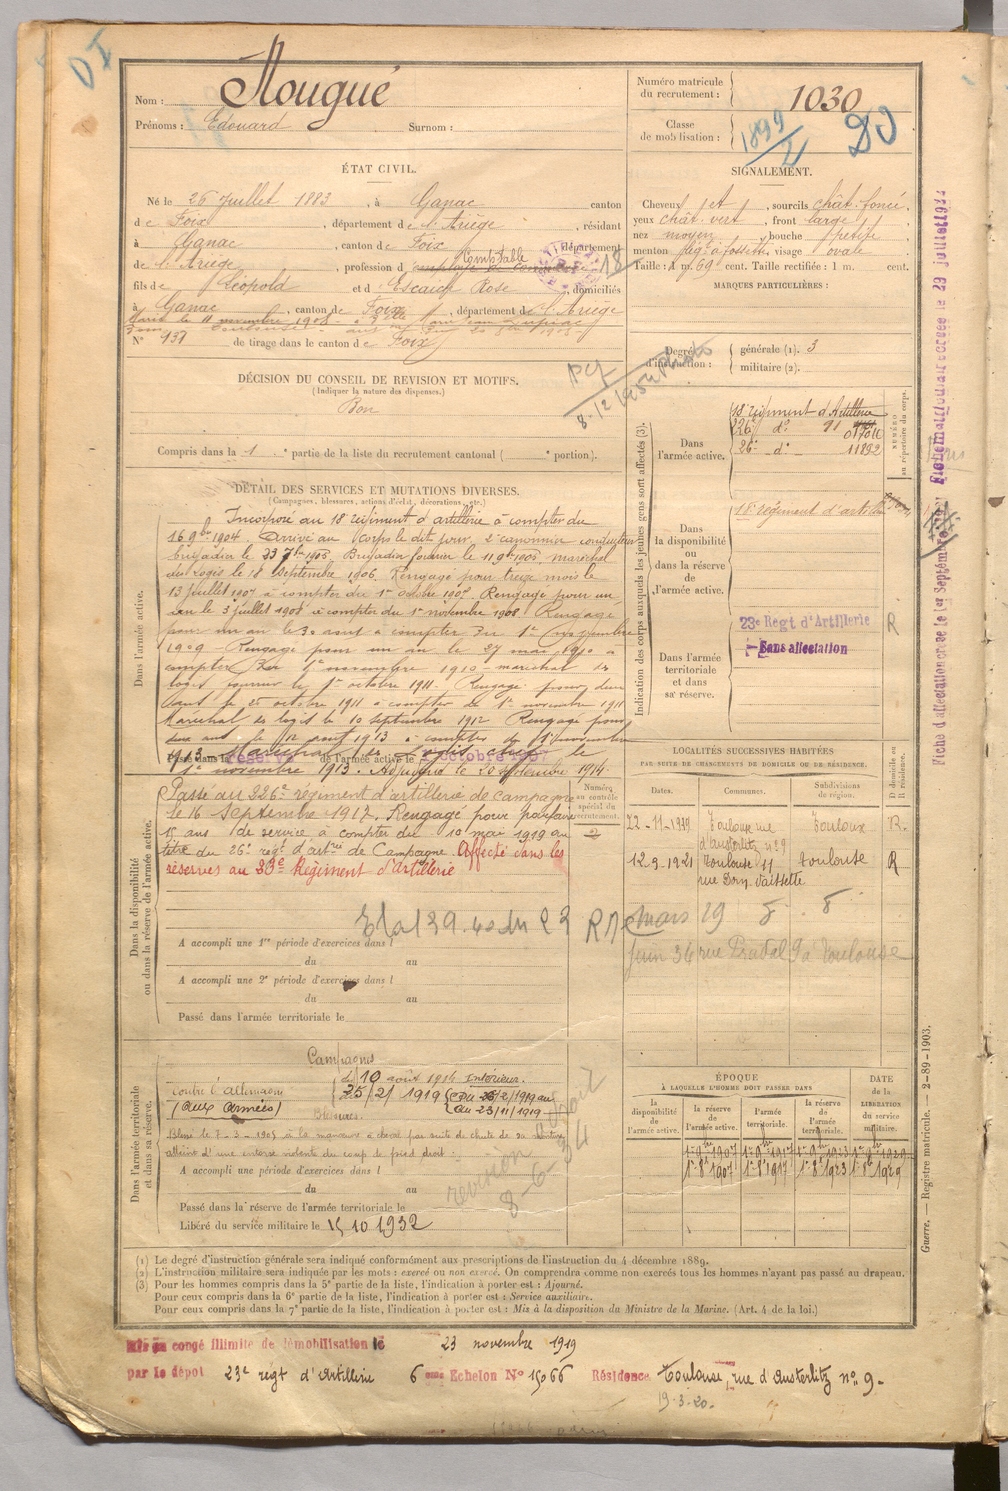 Nom : Rougué
Prénoms : Edouard Surnom :
Numéro matricule du recrutement : 1030
Classe de mobilisation : 1899
ÉTAT CIVIL.
Né le 26 Juillet 1883, à Ganac canton
de Foix, département de l'Ariège, résidant
à Ganac, canton de Foix, département
de l'Ariège, profession d'employé de commerce Comptable
fils de Léopold et d'Escaich Rose, domiciliés
à Ganac, canton de Foix, département de l'Ariège
N° 137 de tirage dans le canton de Foix
SIGNALEMENT.
Cheveux et, sourcils chât. foncé,
yeux chât. vert, front large,
nez moyen, bouche petite,
menton à fossette, visage ovale
Taille : 1 m. 69 cent. Taille rectifiée : 1 m. cent.
MARQUES PARTICULIÈRES :
Degré d'instruction : générale (1). 3
militaire (2).
DÉCISION DU CONSEIL DE REVISION ET MOTIFS.
(Indiquer la nature des dispenses.)
Bon
Compris dans la 1 e partie de la liste du recrutement cantonal ( e portion).
Indication des corps auxquels les jeunes gens sont affectés (3).
NUMÉRO au répertoire du corps.
Dans l'armée active.
18e régiment d'Artillerie
226e do
26e do 11892
Dans la disponibilité ou dans la réserve de l'armée active.
18e régiment d'artillerie
Dans l'armée territoriale et dans sa réserve.
23e Régt d'Artillerie R
Sans affectation
DÉTAIL DES SERVICES ET MUTATIONS DIVERSES.
(Campagnes, blessures, actions d'éclat, décorations, etc.)
Dans l'armée active.
Incorporé au 18e régiment d'artillerie à compter du
16 9bre 1904. Arrivé au corps le dit jour, 2e canonnier conducteur
brigadier le 23 7bre 1905. Brigadier fourrier le 11 9bre 1905, maréchal
des logis le 18 septembre 1906. Rengagé pour treize mois le
13 juillet 1907 à compter du 1er octobre 1907. Rengagé pour un
an le 3 juillet 1908 à compter du 1er novembre 1908. Rengagé
pour un an le 30 août à compter du 1er novembre
1909. Rengagé pour un an le 27 mai 1910 à
compter du 1er novembre 1910. maréchal des
logis fourrier le 1er octobre 1911. Rengagé pour deux
ans le 25 octobre 1911 à compter du 1er novembre 1911
Maréchal des logis le 10 septembre 1912 Rengagé pour
deux ans le 12 août 1913 à compter du 1er novembre
1913. Maréchal des Logis chef le
Passé dans la réserve de l'armée active le 1 octobre 1907
1er novembre 1913. Adjudant le 20 septembre 1914.
Dans la disponibilité ou dans la réserve de l'armée active.
Numéro au contrôle spécial du recrutement.
Passé au 226e régiment d'artillerie de campagne
le 16 Septembre 1917. Rengagé pour parfaire
15 ans de service à compter du 10 mai 1919 au
titre du 26e regt d'artrie de Campagne. Affecté dans les
réserves au 23e Régiment d'Artillerie
A accompli une 1re période d'exercices dans l
du au
A accompli une 2e période d'exercices dans l
du au
Passé dans l'armée territoriale le
LOCALITÉS SUCCESSIVES HABITÉES
PAR SUITE DE CHANGEMENTS DE DOMICILE OU DE RÉSIDENCE.
Dates. Communes. Subdivisions de région. D domicile ou R résidence.
22-11-1919 Toulouse rue d'Austerlitz n° 9 Toulouse R.
12.9.1921 Toulouse 11 rue Dom. Vaissette Toulouse R
mars 29
Juin 36 rue Pradal 9a Toulouse
Dans l'armée territoriale et dans sa réserve.
Campagnes
contre l'Allemagne
(aux armées)
du 10 août 1914 Intérieur.
25/2/1919
au 23/11/1919
Blessures.
Blessé le 7-3-1905 à la manœuvre à cheval par suite de chute de sa monture
atteint d'une entorse violente du coup de pied droit.
A accompli une période d'exercices dans l
du au
Passé dans la réserve de l'armée territoriale le
Libéré du service militaire le 15 10 1932
revision 8-6-34
ÉPOQUE
À LAQUELLE L'HOMME DOIT PASSER DANS
la disponibilité de l'armée active. la réserve de l'armée active. l'armée territoriale. la réserve de l'armée territoriale.
DATE de la LIBÉRATION du service militaire.
1er 9bre 1907 1er 9bre 1917 1er 9bre 1923 1er 9bre 1929
1er 8bre 1907 1er 8bre 1917 1er 8bre 1923 1er 8bre 1929
(1) Le degré d'instruction générale sera indiqué conformément aux prescriptions de l'instruction du 4 décembre 1889.
(2) L'instruction militaire sera indiquée par les mots : exercé ou non exercé. On comprendra comme non exercés tous les hommes n'ayant pas passé au drapeau.
(3) Pour les hommes compris dans la 5e partie de la liste, l'indication à porter est : Ajourné.
Pour ceux compris dans la 6e partie de la liste, l'indication à porter est : Service auxiliaire.
Pour ceux compris dans la 7e partie de la liste, l'indication à porter est : Mis à la disposition du Ministre de la Marine. (Art. 4 de la loi.)
Guerre. — Registre matricule. — 2-89-1903.
Mis en congé illimité de démobilisation le 23 novembre 1919
par le dépôt 23e régt d'Artillerie 6eme Echelon N° 15066 Résidence Toulouse, rue d'Austerlitz n° 9.
19.3.20.